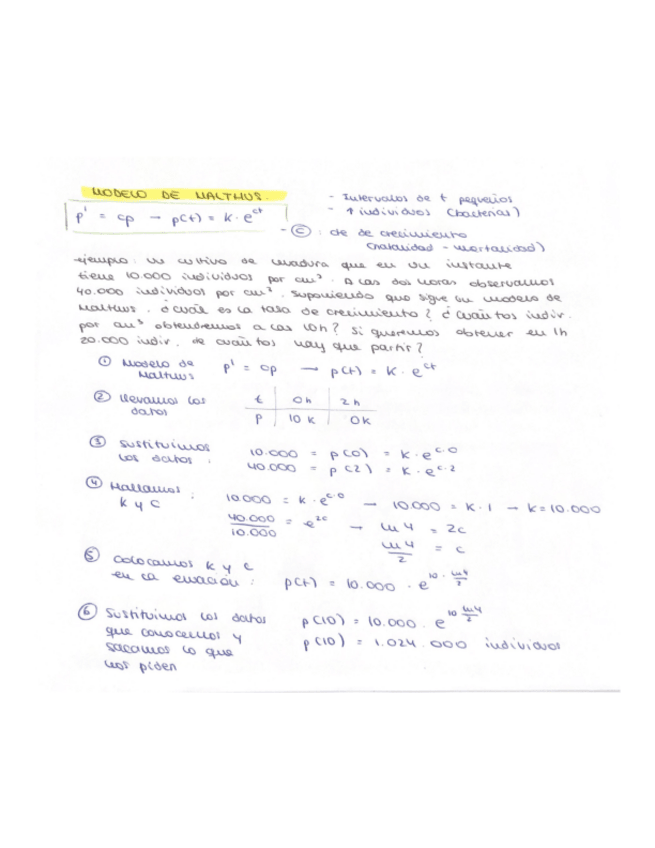 MODELO DE MALTHUS.
p' = cp → p(t) = k · e^ct
- Intervalos de t pequeños
- ↑ individuos (bacterias)
- ⓒ : cte de crecimiento
(natalidad - mortalidad)
ejemplo: Un cultivo de madura que en un instante
tiene 10.000 individuos por cm³. A las dos horas observamos
40.000 individuos por cm³. Suponiendo que sigue un modelo de
Malthus. ¿cuál es la tasa de crecimiento? ¿Cuántos indiv.
por cm³ obtendremos a las 10h? Si queremos obtener en 1h
20.000 indiv. de cuántos hay que partir?
① Modelo de Malthus p' = cp → p(t) = k · e^ct
② llevamos los datos
t | 0h | 2h
P | 10 k | 0k
③ Sustituimos los datos :
10.000 = p(0) = k · e^c·0
40.000 = p(2) = k · e^c·2
④ Hallamos k y c :
10.000 = k · e^c·0 → 10.000 = k · 1 → k = 10.000
40.000/10.000 = e^2c → ln 4 = 2c
ln 4/2 = c
⑤ Colocamos k y c
en la ecuación : p(t) = 10.000 · e^10 · ln4/2
⑥ Sustituimos los datos p(10) = 10.000 · e^10 ln4/2
que conocemos y p(10) = 1.024.000 individuos
sacamos lo que
nos piden